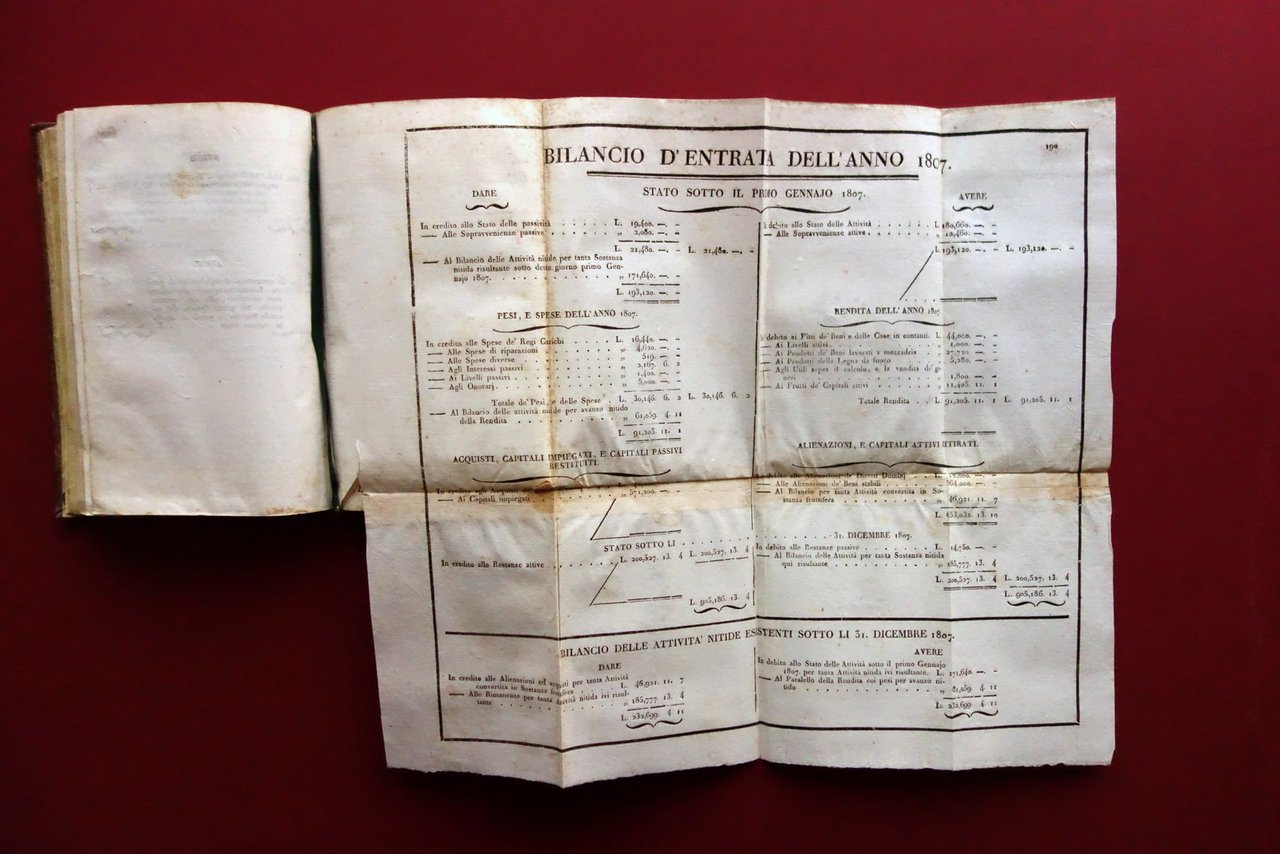 190
BILANCIO D'ENTRATA DELL'ANNO 1807.
STATO SOTTO IL PRIMO GENNAJO 1807.
DARE
In credito allo Stato delle passività . . . . . . L. 19,400. —. –
— Alle Sopravvenienze passive . . . . . . „ 2,080. —. –
L. 21,480. —. – L. 21,480. —. –
— Al Bilancio delle Attività nitide per tanta Sostanza
nitida risultante sotto detto giorno primo Gen-
najo 1807. . . . . . . . . . „ 171,640. —. –
L. 193,120. —. –
AVERE
debito allo Stato delle Attività . . . . . . L. 180,660. —. –
— Alle Sopravvenienze attive . . . . . . 12,460. —. –
L. 193,120. —. – L. 193,120. —. –
PESI, E SPESE DELL'ANNO 1807.
In credito alle Spese de' Regi Carichi . . . L. 16,440. —. –
— Alle Spese di riparazioni . . . . . . „ 4,620. —. –
— Alle Spese diverse . . . . . . „ 519. —. –
— Agli Interessi passivi . . . . . . „ 2,167. 6. 2
— Ai Livelli passivi . . . . . . „ 1,400. —. –
— Agli Onorarj . . . . . . „ 5,000. —. –
Totale de' Pesi, e delle Spese L. 30,146. 6. 2 L. 30,146. 6. 2
— Al Bilancio delle attività nitide per avanzo nitido
della Rendita . . . . . . „ 61,059. 4. 11
L. 91,205. 11. 1
RENDITA DELL'ANNO 1807
debito ai Fitti de' Beni e delle Case in contanti. L. 44,000. —. –
— Ai Livelli attivi . . . . . . 1,000. —. –
— Ai Prodotti de' Beni lavorati a mezzadria . . „ 27,720. —. –
— Ai Prodotti della Legna da fuoco . . . „ 5,280. —. –
— Agli Utili sopra il calcolo, e la vendita de' ge-
neri . . . . . . „ 1,800. —. –
— Ai Frutti de' Capitali attivi . . . „ 11,405. 11. 1
Totale Rendita . . L. 91,205. 11. 1 L. 91,205. 11. 1
ACQUISTI, CAPITALI IMPIEGATI, E CAPITALI PASSIVI
RESTITUITI.
In credito agli Acquisti
— Ai Capitali impiegati . . . „ 571,200. —. –
ALIENAZIONI, E CAPITALI ATTIVI RITIRATI.
In debito alle Alienazioni de' Diretti Dominj
— Alle Alienazioni de' Beni stabili . . . „ 564,000. —. –
— Al Bilancio per tanta Attività convertita in So-
stanza fruttifera . . . . . . „ 46,921. 11. 7
L. 653,032. 13. 10
STATO SOTTO LI . . . . . . . . . . 31. DICEMBRE 1807.
In credito alle Restanze attive . . . . . . L. 200,527. 13. 4 L. 200,527. 13. 4
L. 905,186. 13. 4
In debito alle Restanze passive . . . L. 14,750. —. –
— Al Bilancio delle Attività per tanta Sostanza nitida
qui risultante . . . . . . „ 185,777. 13. 4
L. 200,527. 13. 4 L. 200,527. 13. 4
L. 905,186. 13. 4
BILANCIO DELLE ATTIVITA' NITIDE ESISTENTI SOTTO LI 31. DICEMBRE 1807.
DARE
In credito alle Alienazioni ed acquisti per tanta Attività
convertita in Sostanza fruttifera . . L. 46,921. 11. 7
— Alle Rimanenze per tanta Attività nitida ivi risul-
tante . . . . . . „ 185,777. 13. 4
L. 232,699. 4. 11
AVERE
In debito allo Stato delle Attività sotto il primo Gennajo
1807. per tanta Attività nitida ivi risultante. L. 171,640. —. –
— Al Paralello della Rendita cui pesi per avanzo ni-
tido . . . . . . „ 61,059. 4. 11
L. 232,699. 4. 11